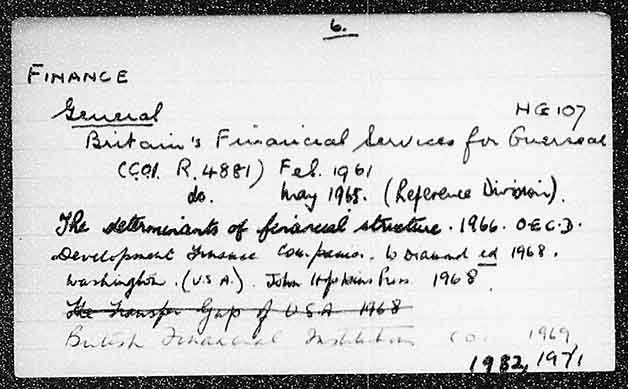 6.
FINANCE
General HG 107
Britain's Financial Services for Overseas
(COI. R. 4881) Feb. 1961
do. May 1965. (Reference Division).
The determinants of financial structure. 1966. O.E.C.D.
Development Finance Companies. W Diamond ed 1968.
Washington. (U.S.A.). John Hopkins Press 1968.
The Transfer Gap of U.S.A 1968
British Financial Institutions CO. 1969
1982, 1971